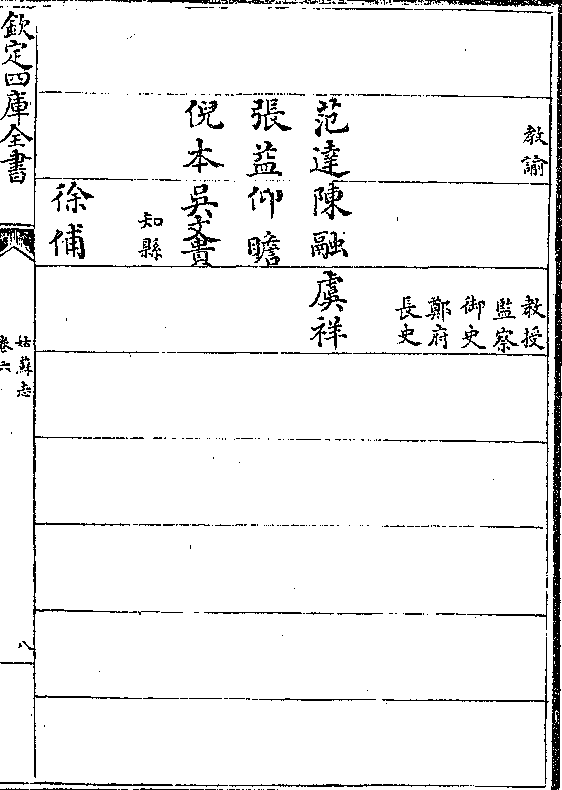 教諭
教授
監察
御史
鄭府
長史
范達
陳融
虞祥
張益
仰瞻
倪本
吳文
知縣
徐俌
欽定四庫全書
姑蘇志
卷六
八